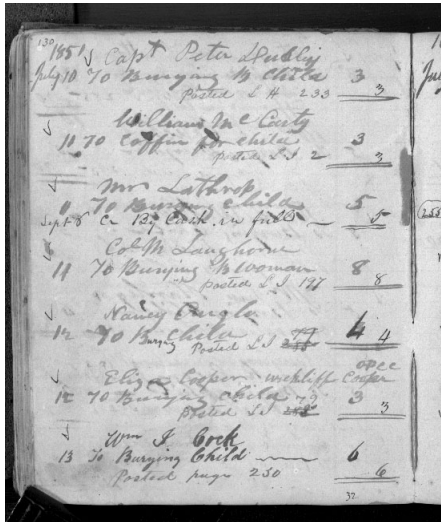 130
1851 Capt Peter
July 10 To Burying B Child 3
Posted L H 233 3
William Mc Carty
11 To Coffin for child 3
Posted L I 2 3
Mrs Lathrop
11 To Burying Child 5
Sept 8 Cr By Cash in full 5
Col M Langhorne
11 To Burying B Woman 8
Posted L I 197 8
Nancy
12 To Burying B Child 4
Posted L I 79 4
Eliza Cooper Wickliff Cooper
12 To Burying Child 3
Posted L I 79 3
Wm J Cock
13 To Burying Child 6
Posted page 230 6
37